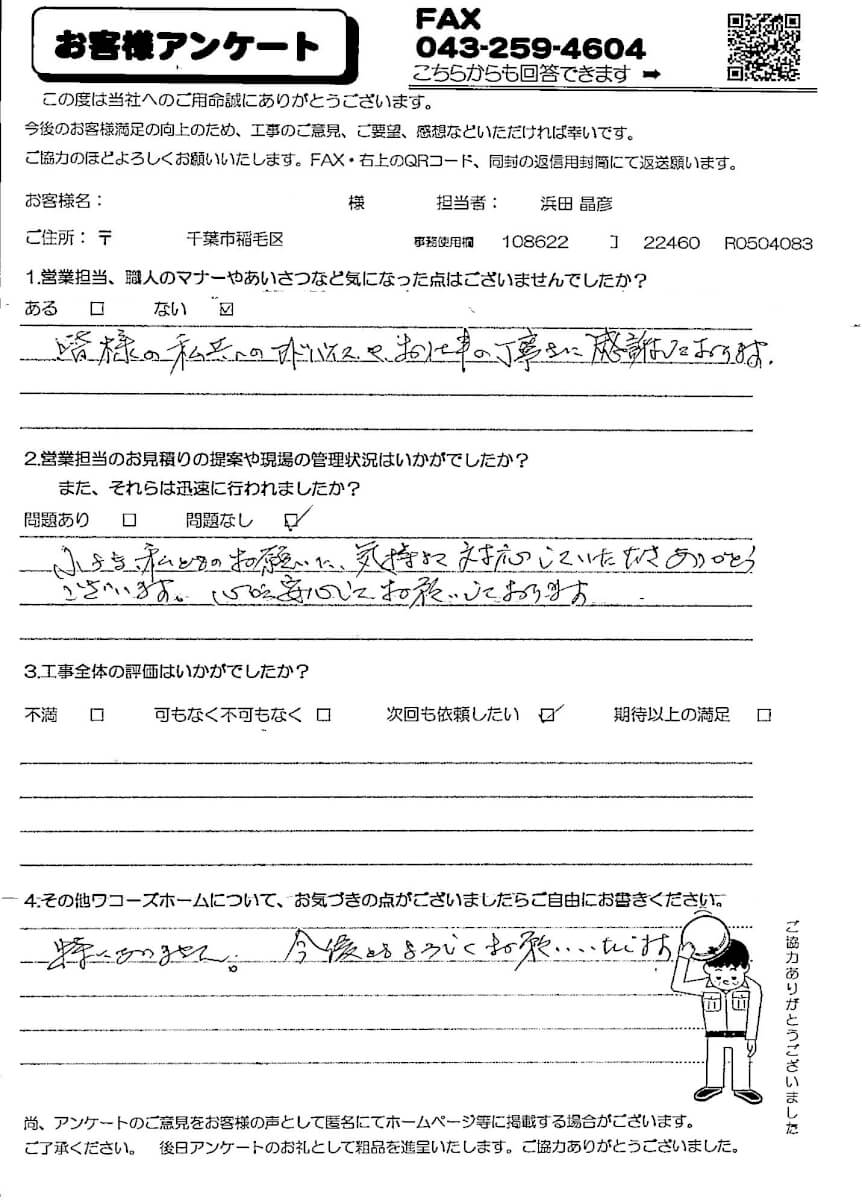 お客様アンケート
FAX
043-259-4604
こちらからも回答できます ➡
この度は当社へのご用命誠にありがとうございます。
今後のお客様満足の向上のため、工事のご意見、ご要望、感想などいただければ幸いです。
ご協力のほどよろしくお願いいたします。FAX・右上のQRコード、同封の返信用封筒にて返送願います。
お客様名： 様 担当者： 浜田 晶彦
ご住所：〒 千葉市稲毛区 事務使用欄 108622 J 22460 R0504083
1.営業担当、職人のマナーやあいさつなど気になった点はございませんでしたか？
ある □ ない ☑
皆様の私共へのアドバイスや、お仕事の丁寧さに感謝しております。
2.営業担当のお見積りの提案や現場の管理状況はいかがでしたか？
また、それらは迅速に行われましたか？
問題あり □ 問題なし ☑
私どものお願いに、気持よく対応していただきありがとう
ございます。 安心してお願いしております
3.工事全体の評価はいかがでしたか？
不満 □ 可もなく不可もなく □ 次回も依頼したい ☑ 期待以上の満足 □
4.その他ワコーズホームについて、お気づきの点がございましたらご自由にお書きください。
特にありません。 今後ともよろしくお願いいたします
ご協力ありがとうございました
尚、アンケートのご意見をお客様の声として匿名にてホームページ等に掲載する場合がございます。
ご了承ください。 後日アンケートのお礼として粗品を進呈いたします。ご協力ありがとうございました。